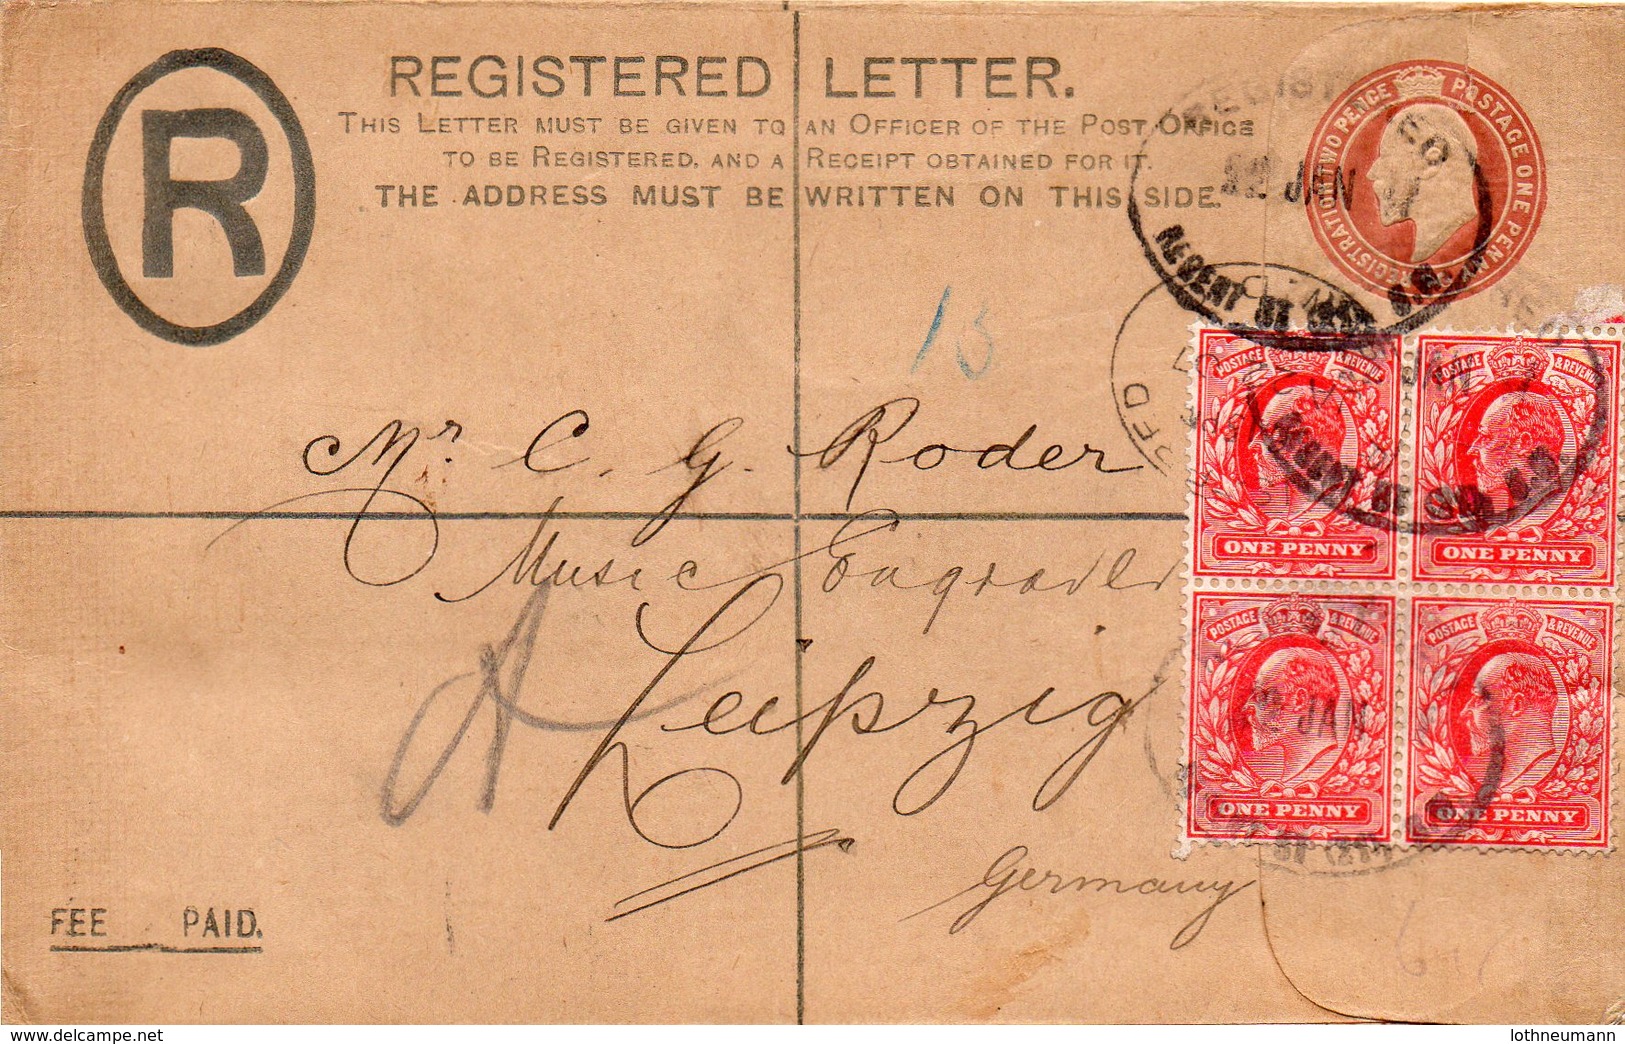 REGISTERED LETTER.
THIS LETTER MUST BE GIVEN TO AN OFFICER OF THE POST OFFICE
TO BE REGISTERED, AND A RECEIPT OBTAINED FOR IT.
THE ADDRESS MUST BE WRITTEN ON THIS SIDE.
R
REGISTRATION TWO PENCE POSTAGE ONE PENNY
REGIST
JAN
REGENT ST
13
Mr. C. G. Roder
Music Engraver
Leipzig
Germany
A
POSTAGE & REVENUE
POSTAGE & REVENUE
ONE PENNY
ONE PENNY
POSTAGE & REVENUE
POSTAGE & REVENUE
JAN
ONE PENNY
ONE PENNY
FEE PAID.
delcampe.net
lothneumann